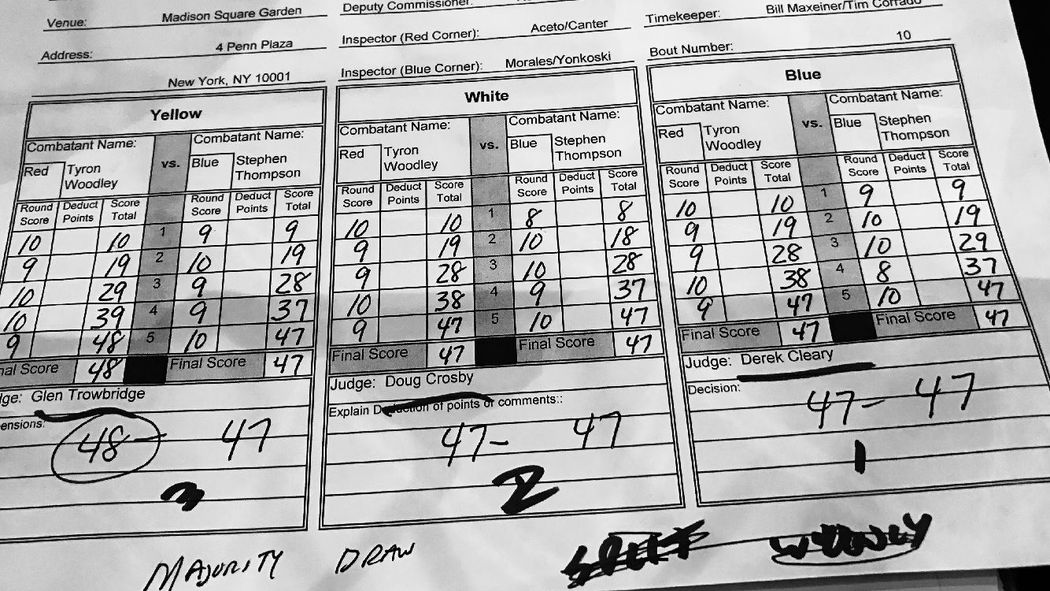 Venue: Madison Square Garden
Deputy Commissioner:
Timekeeper: Bill Maxeiner/Tim Corrado
Address: 4 Penn Plaza
Inspector (Red Corner): Aceto/Canter
Bout Number: 10
New York, NY 10001
Inspector (Blue Corner): Morales/Yonkoski
Yellow
Combatant Name: vs. Combatant Name:
Red Tyron Woodley Blue Stephen Thompson
Round Score Deduct Points Score Total Round Score Deduct Points Score Total
10 10 1 9 9
9 19 2 10 19
10 29 3 9 28
10 39 4 9 37
9 48 5 10 47
nal Score 48 Final Score 47
ge: Glen Trowbridge
ensions:
48 - 47
3
White
Combatant Name: vs. Combatant Name:
Red Tyron Woodley Blue Stephen Thompson
Round Score Deduct Points Score Total Round Score Deduct Points Score Total
10 10 1 8 8
9 19 2 10 18
9 28 3 10 28
10 38 4 9 37
9 47 5 10 47
Final Score 47 Final Score 47
Judge: Doug Crosby
Explain Deduction of points or comments::
47 - 47
2
Blue
Combatant Name: vs. Combatant Name:
Red Tyron Woodley Blue Stephen Thompson
Round Score Deduct Points Score Total Round Score Deduct Points Score Total
10 10 1 9 9
9 19 2 10 19
9 28 3 10 29
10 38 4 8 37
9 47 5 10 47
Final Score 47 Final Score 47
Judge: Derek Cleary
Decision:
47 - 47
1
MAJORITY DRAW